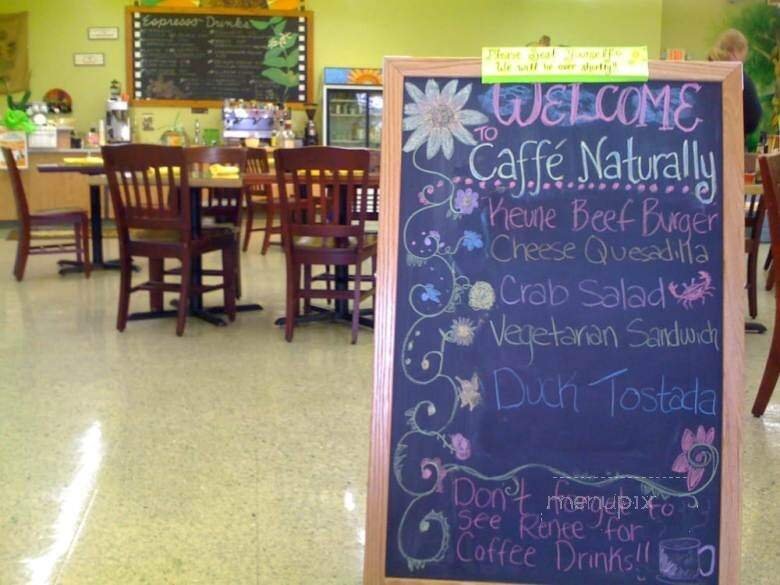 Espresso Drinks
Please Seat Yourself
We will be over shortly!!
WELCOME
TO
Caffé Naturally
Keune Beef Burger
Cheese Quesadilla
Crab Salad
Vegetarian Sandwich
Duck Tostada
Don't forget to
see Renee for
Coffee Drinks!!
menupix